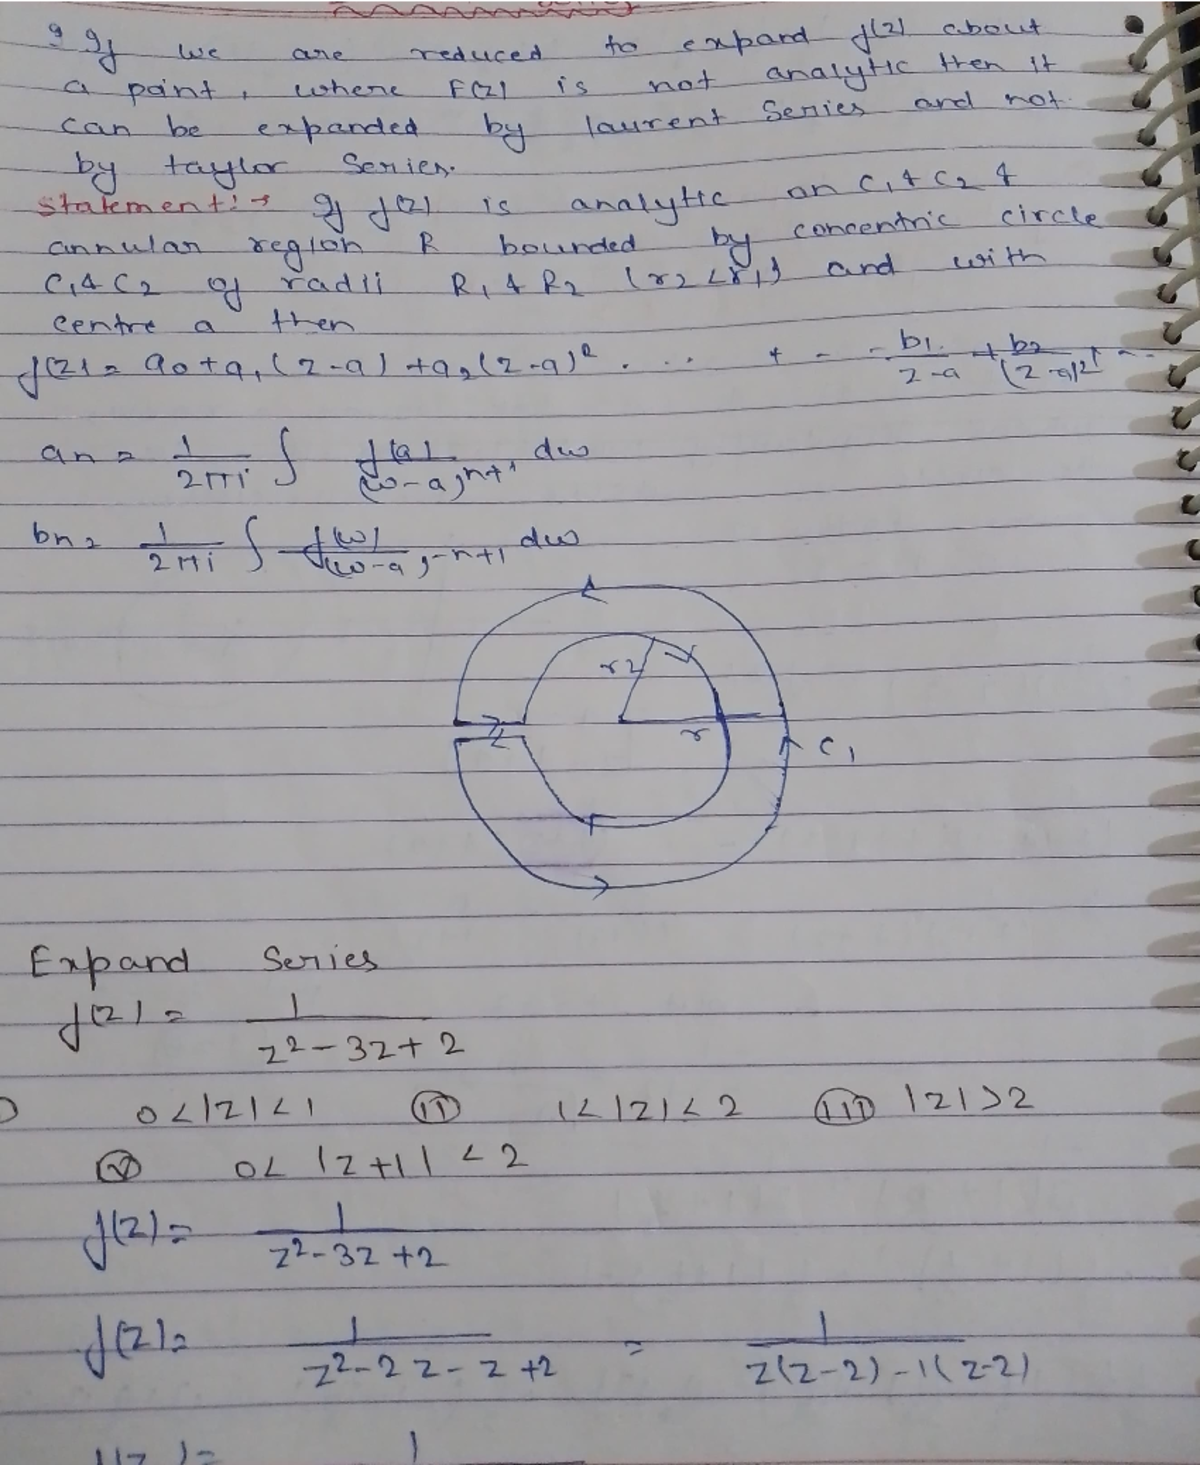 If we are reduced to expand f(z) about
a point, where F(z) is not analytic then it
can be expanded by laurent Series and not
by taylor Series.
Statement:→ If f(z) is analytic on C1 & C2 &
annular region R bounded by concentric circle
C1 & C2 of radii R1 & R2 (r2<r1) and with
centre a then
f(z) = a0 + a1(z-a) + a2(z-a)² . ... + - - b1/z-a + b2/(z-a)² + --
an = 1/2πi ∫ f(a)/(w-a)^n+1 dw
bn = 1/2πi ∫ f(w)/(w-a)^-n+1 dw
r2
r
C1
Expand Series
f(z) = 1/z²-3z+2
0<|z|<1 (ii) 1<|z|<2 (iii) |z|>2
(v) 0< |z+1| <2
f(z) = 1/z²-3z+2
f(z) = 1/z²-2z-z+2 = 1/z(z-2)-1(z-2)
f(z) = 1